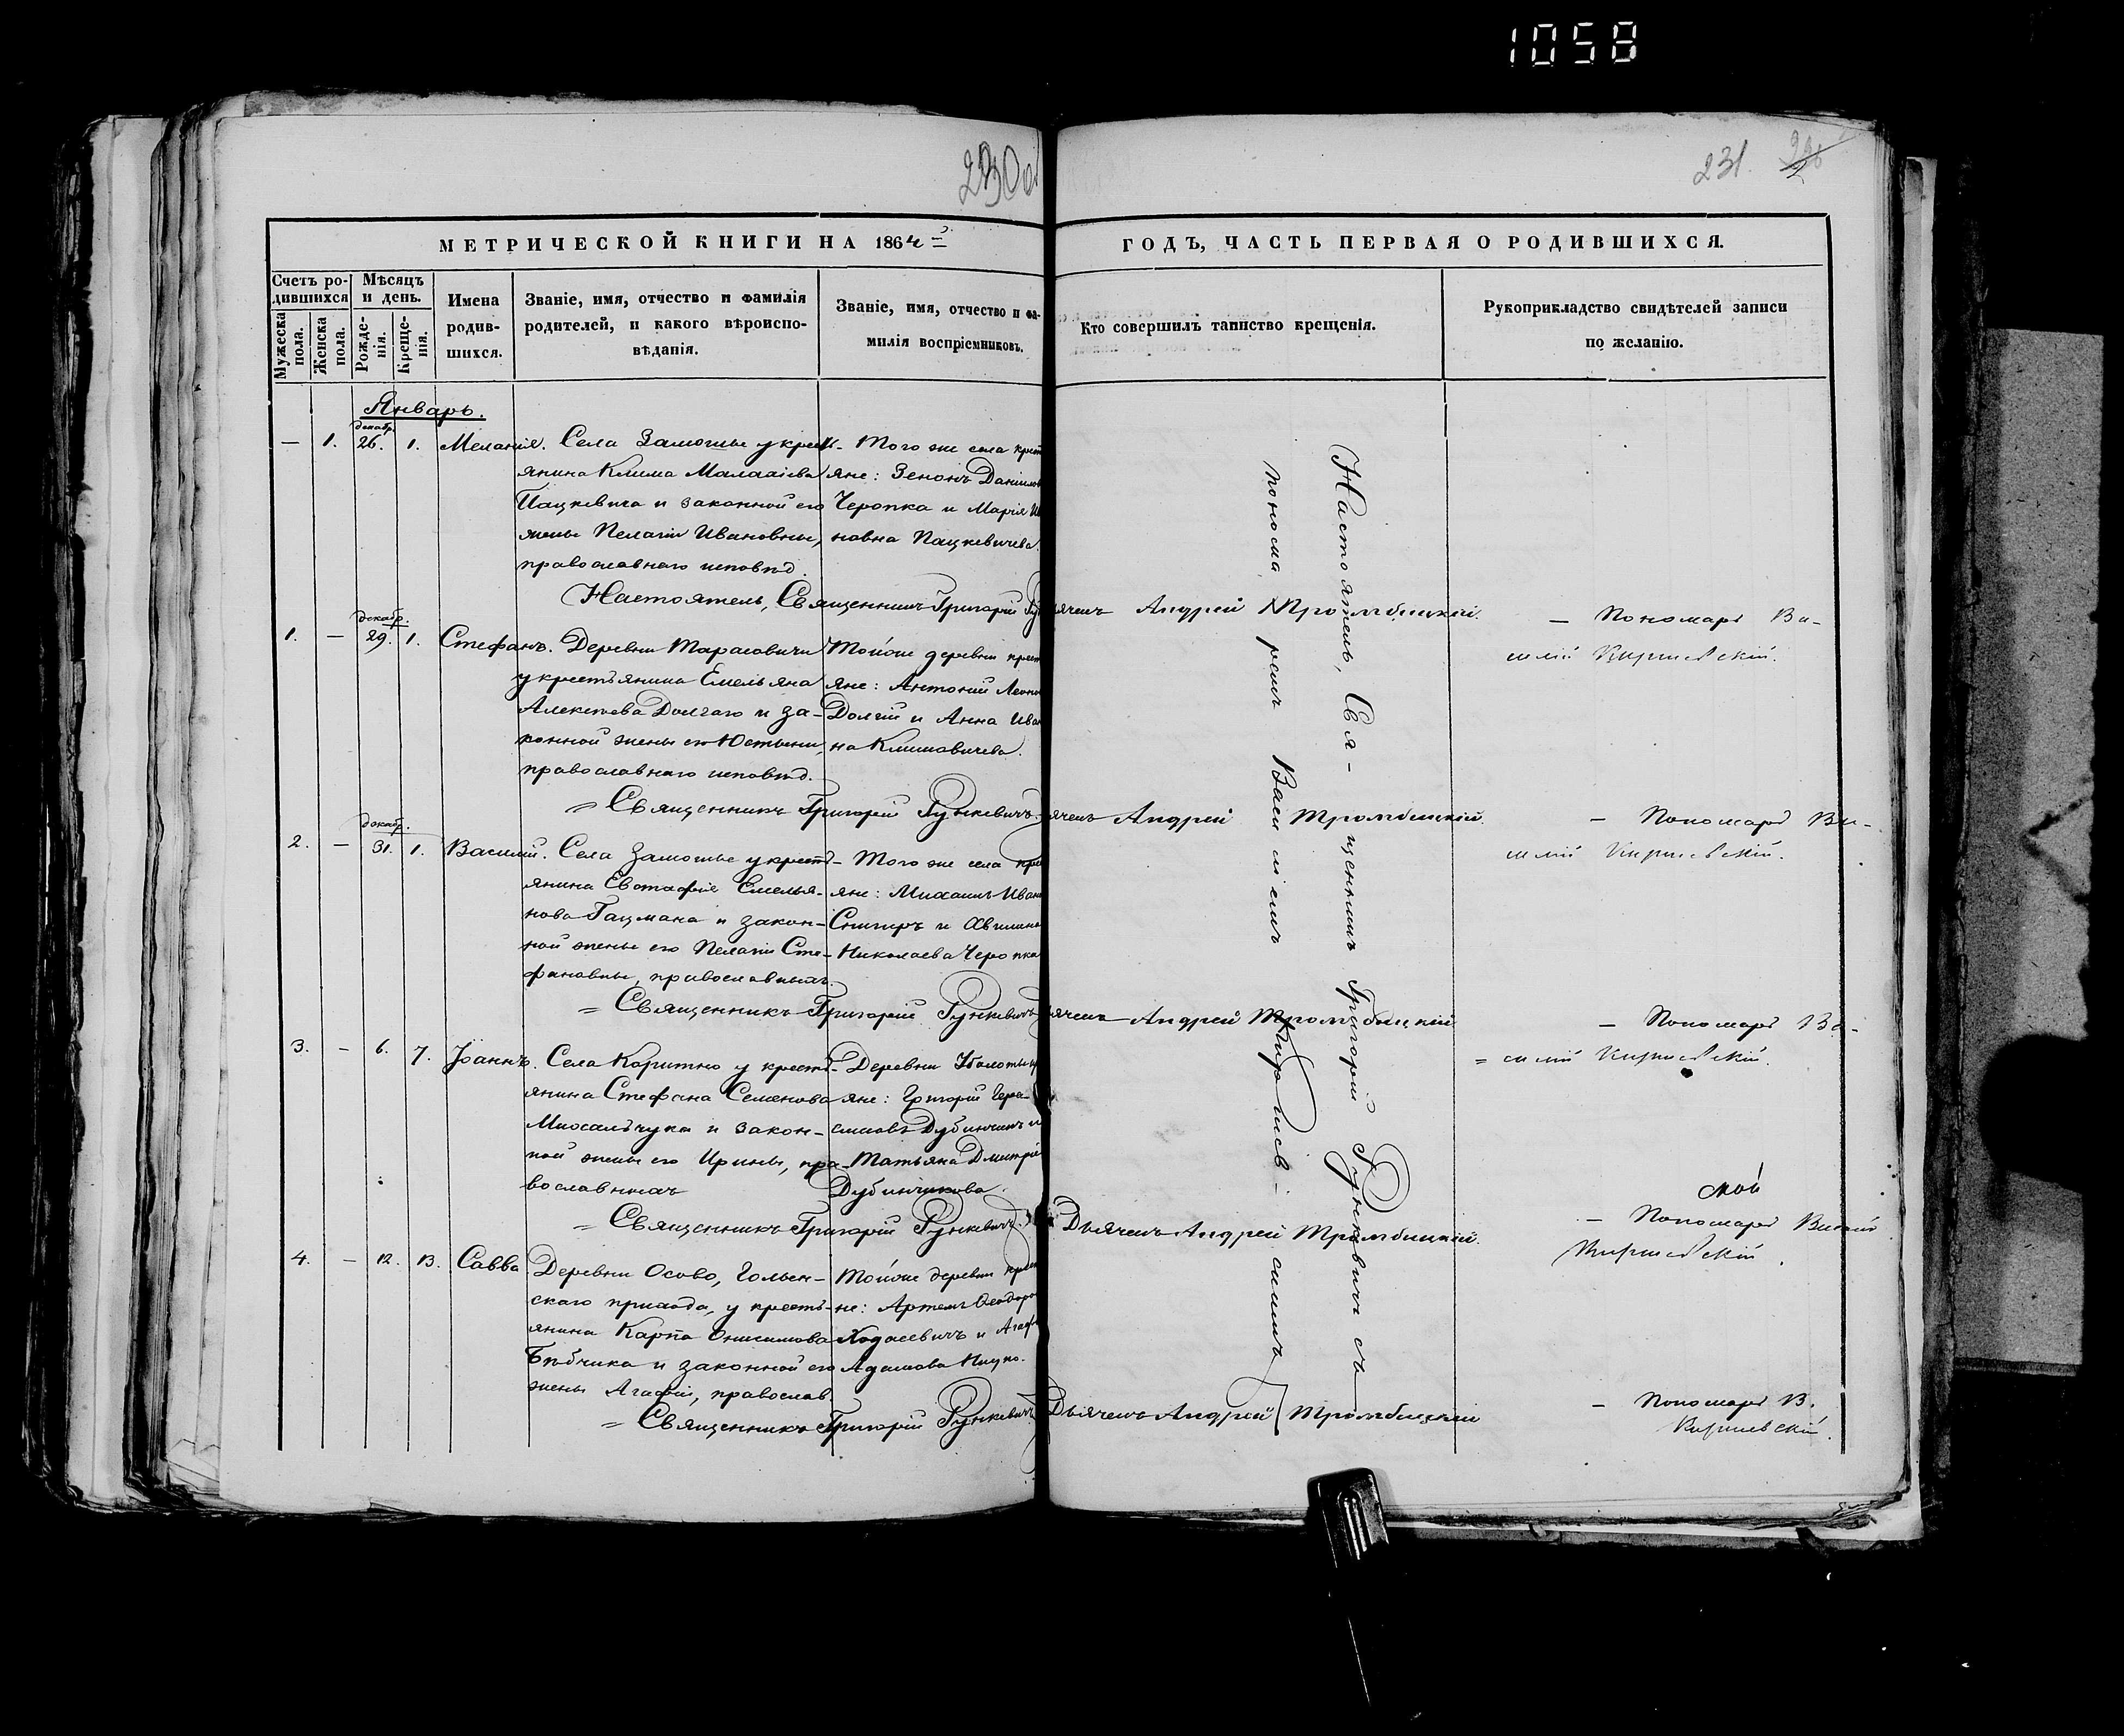 1058
230 об
231.
МЕТРИЧЕСКОЙ КНИГИ НА 1864й
ГОДЪ, ЧАСТЬ ПЕРВАЯ О РОДИВШИХСЯ.
Счетъ ро-
дившихся
Мѣсяцъ
и день.
Мужеска
пола.
Женска
пола.
Рожде-
нія.
Креще-
нія.
Имена
родив-
шихся.
Званіе, имя, отчество и фамилія
родителей, и какого вѣроиспо-
вѣданія.
Званіе, имя, отчество и фа-
милія воспріемниковъ.
Кто совершилъ таинство крещенія.
Рукоприкладство свидѣтелей записи
по желанію.
Январь.
декабр.
— 1. 26. 1. Меланія. Села Замошье у крест-
янина Клима
Пацкевича и законной его
жены Пелагіи Ивановны,
православнаго исповѣд.
Того же села крест
яне: Зенонъ Даніилов
Черопка и Марія И
новна Пацкевичева.
Настоятель, Священникъ Григорій
ячекъ Андрей Тромбицкій.
— Пономарь Ва-
силій Киркевскій.
декабр.
1. — 29. 1. Стефанъ. Деревни Тарасовичи
у крестьянина Емельяна
Алексѣева Долгаго и за-
конной жены его Юстыни,
православнаго исповѣд.
Тойже деревни крест
яне: Антоній Леон
Долгій и Анна Иван
на Климовичева.
= Священникъ Григорій Рункевичъ.
ячекъ Андрей Тромбицкій.
— Пономарь Ва-
силій Киркевскій.
декабр.
2. — 31. 1. Василій. Села Замошье у крест-
янина Евстафія Емелья-
нова Гацмана и закон-
ной жены его Пелагіи Сте-
фановны, православныхъ.
Того же села кре
яне: Михаилъ Иван
Снигиръ и
Николаева Черопка
= Священникъ Григорій Рункевичъ
ячекъ Андрей Тромбицкій
— Пономарь Ва-
= силій Киркевскій.
3. — 6. 7. Іоаннъ. Села Коритно у крест-
янина Стефана Семенова
и закон-
ной жены его Ирины, пра-
вославныхъ
Деревни
яне: Григорій Гера-
симовъ Дубинчикъ и
Татьяна Дмитріе
Дубинчикова.
= Священникъ Григорій Рункевичъ.
Дьячекъ Андрей Тромбицкій.
— Пономарь Василій
Киркевскій.
4. — 12. 13. Савва. Деревни Осово, Гольен-
скаго прихода, у кресть-
янина Карпа Онисимова
Бѣбчика и законной его
жены Агафіи, православ.
Тойже деревни крест
не: Артемъ Ѳеодоро
Ходасевичъ и Агаф
Адамова
= Священникъ Григорій Рункевичъ
Дьячекъ Андрей Тромбицкій
— Пономарь В.
Киркевскій.
Настоятель, Свя- щенникъ Григорій Рункевичъ съ
понома ремъ Васи ліемъ Киркев- скимъ